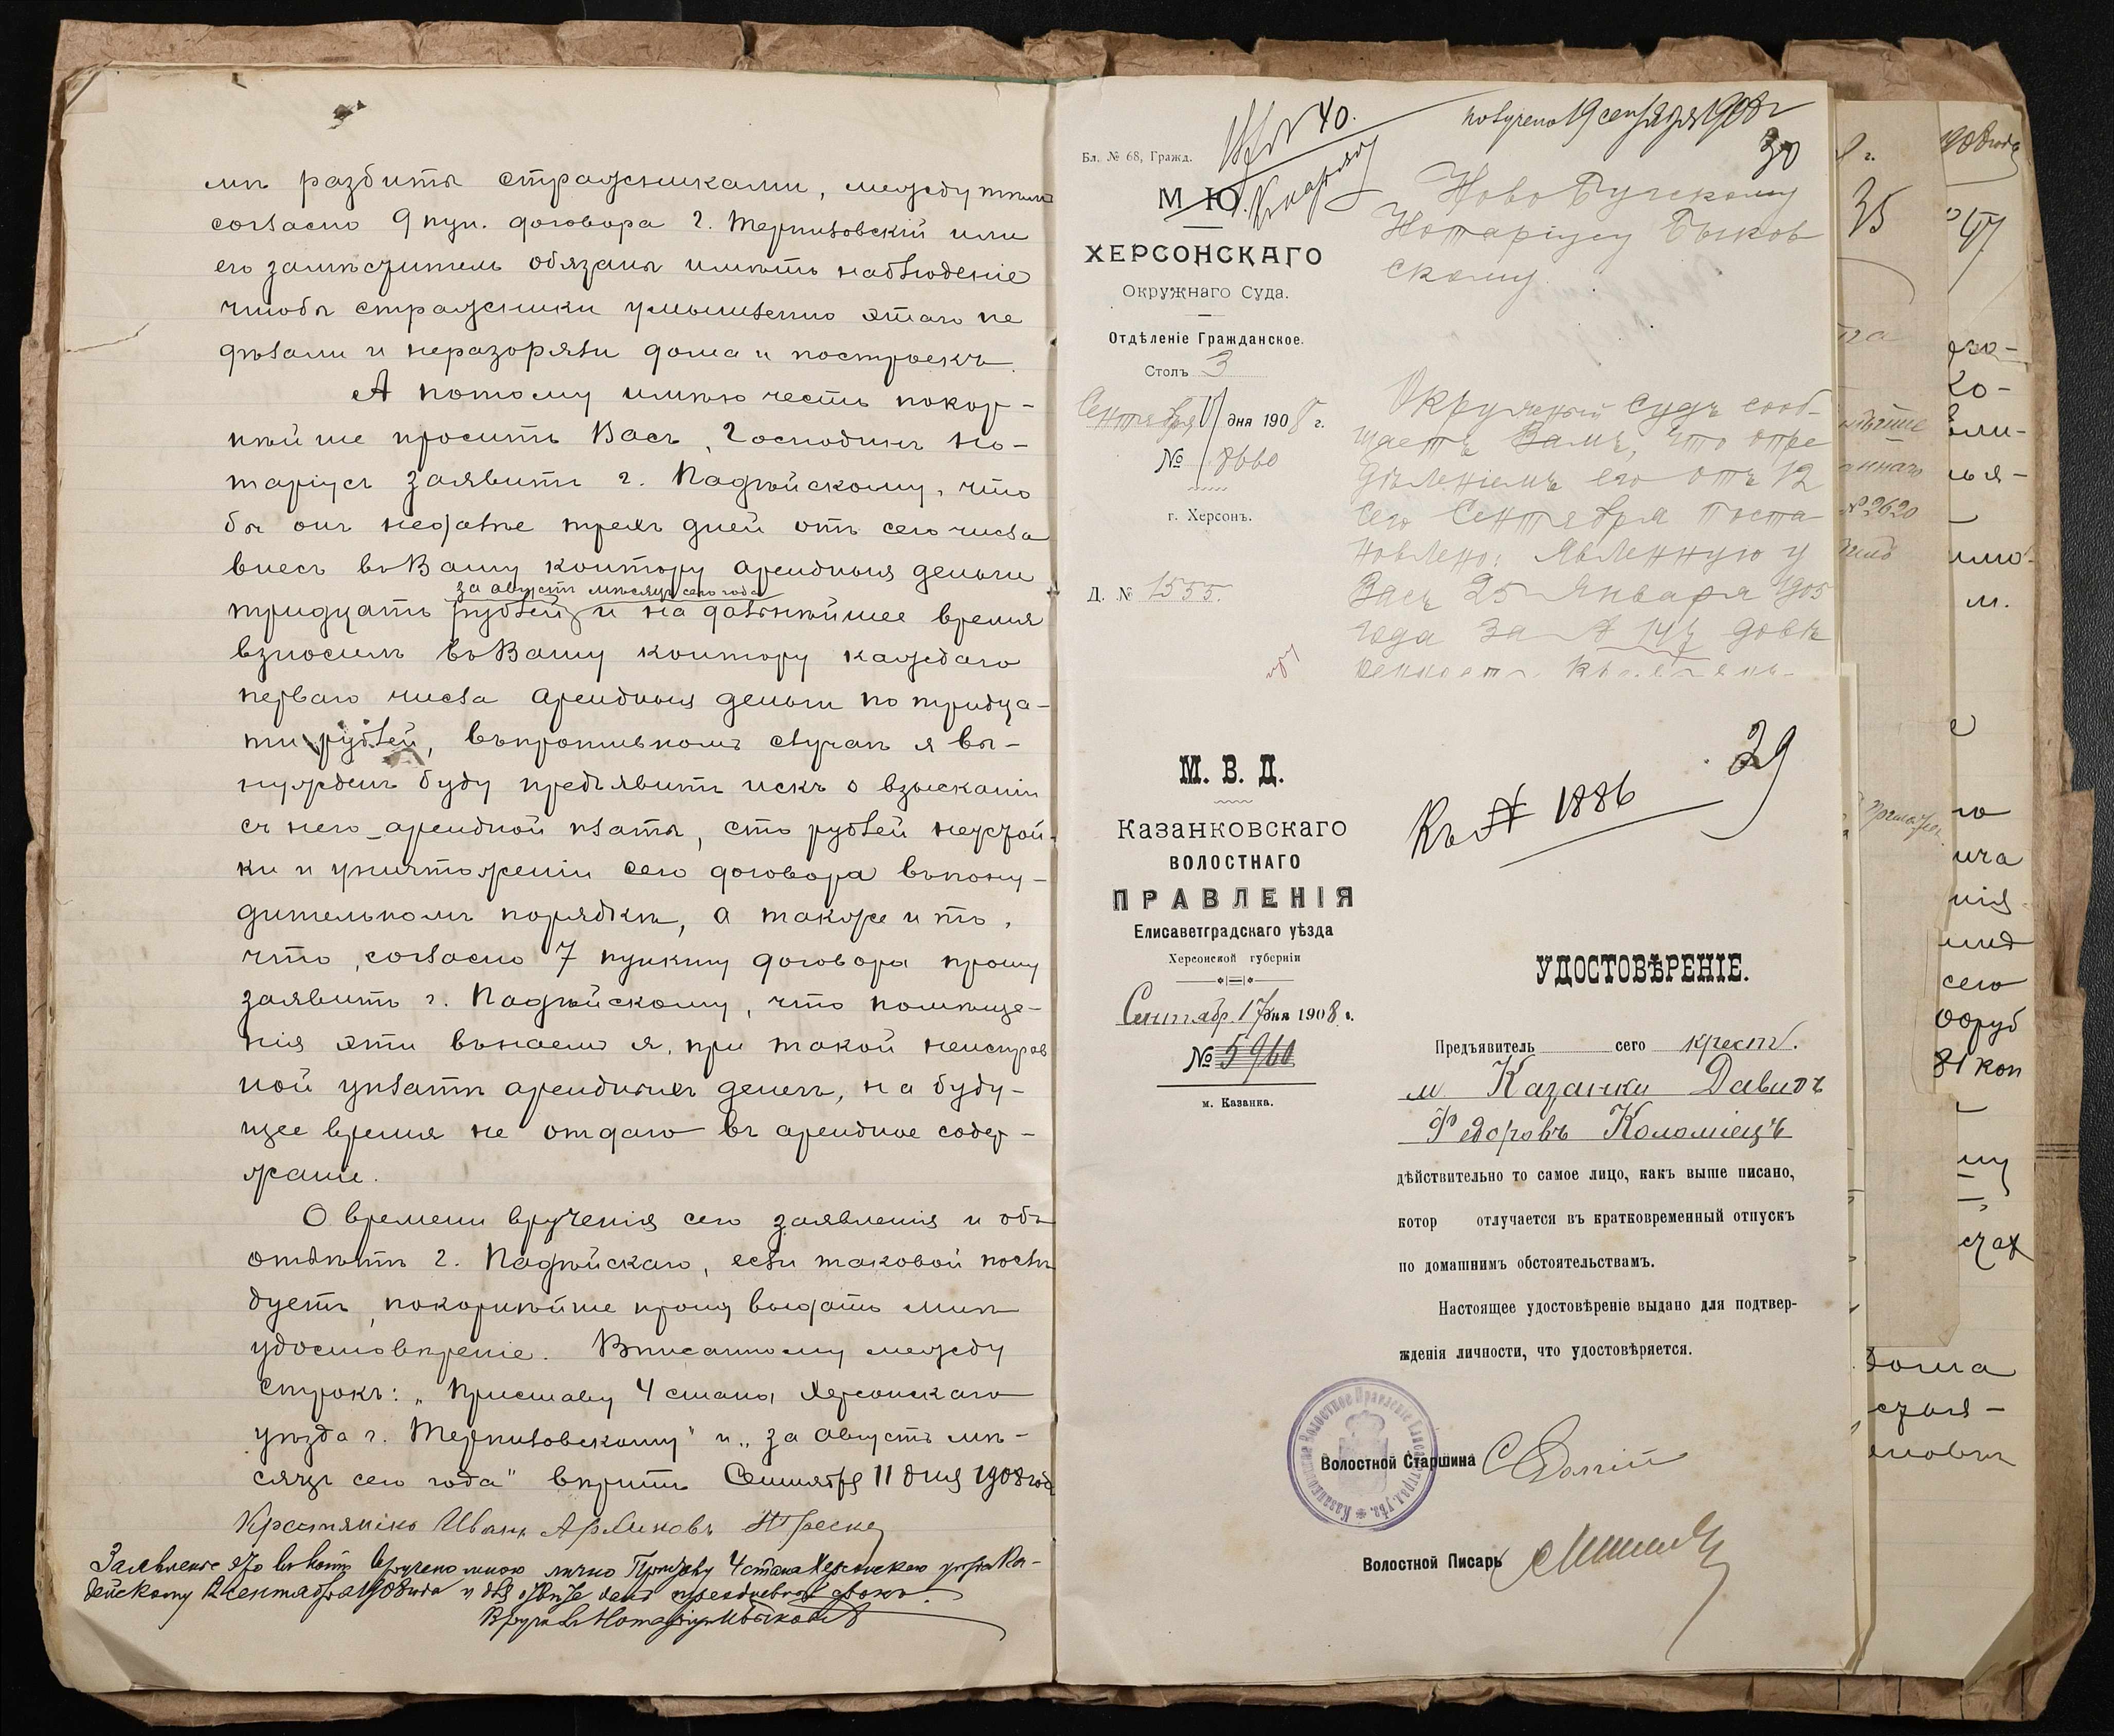 мъ разбиты стражниками, между тѣмъ
согласно 9 пун. договора г. Терпиловскій или
его замѣститель обязаны имѣть наблюденіе
чтобы стражники умышленно этого не
дѣлали и неразоряли дома и построекъ.
А потому имѣю честь покор-
нѣйше просить Васъ, Господинъ Но-
таріусъ заявить г. Падѣйскому, что
бы онъ недалѣе трехъ дней отъ сего числа
внесъ въ Вашу контору арендныя деньги
за августъ мѣсяцъ сего года
тридцать рублей и на дальнѣйшее время
взносилъ въ Вашу контору каждаго
перваго числа арендныя деньги по тридца-
ти рублей, въпротивномъ случаѣ я вы-
нужденъ буду предъявить искъ о взысканіи
съ него арендной платы, сто рублей неустой-
ки и уничтоженіи сего договора въпону-
дительномъ порядкѣ, а также и то,
что, согласно 7 пункту договора прошу
заявить г. Падѣйскому, что помѣще-
нія эти внаемъ я, при такой неисправ
ной уплатѣ арендныхъ денегъ, на буду-
щее время не отдаю въ арендное содер-
жаніе.
О времени врученія сего заявленія и объ
отвѣтѣ г. Падѣйскаго, если таковой послѣ
дуетъ, покорнѣйше прошу выдать мнѣ
удостовѣреніе. Вписанному между
строкъ: „Приставу 4 стана Херсонскаго
уѣзда г. Терпиловскому" и „за августъ мѣ-
сяцъ сего года" вѣрить Сентября 11 дня 1908 года
Крестьянинъ Иванъ
Заявленіе это въ копіи вручено мною лично Приставу 4 стана Херсонскаго уѣзда Па-
дейскому сентября 1908 года и для отвѣта данъ трехдневный срокъ.
Нотаріусъ Быковъ
№ 40.
получено 19 сентября 1908 г
30
Бл. № 68, Гражд.
М Ю.
ХЕРСОНСКАГО
Окружнаго Суда.
Отдѣленіе Гражданское.
Столъ 3
Сентября дня 1908 г.
№ 8660
г. Херсонъ.
Д. № 1555.
Ново Бугскому
Нотаріусу Быков
скому
Окружный Судъ сооб-
щаетъ Вамъ, что опре
дѣленіемъ его отъ 12
сего Сентября поста
новлено: явленную у
Васъ 25 Января 1905
года за № 147 довѣ
ренность
29
Къ № 1886
М. В. Д.
Казанковскаго
ВОЛОСТНАГО
ПРАВЛЕНІЯ
Елисаветградскаго уѣзда
Херсонской губерніи
Сентябр. 17 дня 1908 г.
№ 5960
м. Казанка.
УДОСТОВѢРЕНІЕ.
Предъявитель сего крест.
м. Казанки Давидъ
Федоровъ Коломіецъ
дѣйствительно то самое лицо, какъ выше писано,
котор отлучается въ кратковременный отпускъ
по домашнимъ обстоятельствамъ.
Настоящее удостовѣреніе выдано для подтвер-
жденія личности, что удостовѣряется.
Волостной Старшина
Волостной Писарь
35
№ 2620
сего
81 коп
дома